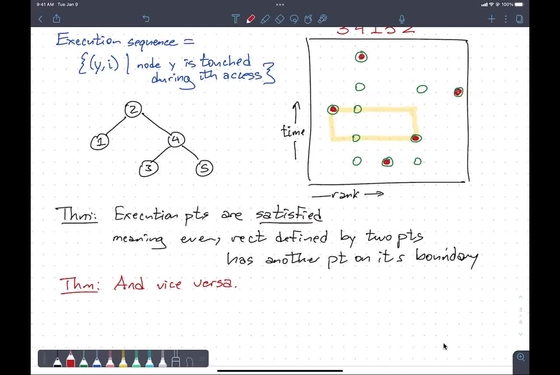 9:41 AM Tue Jan 9
100%
Execution sequence =
{(y,i) | node y is touched
during ith access}
2
1
4
3
5
34152
↑
time
rank →
Thm: Execution pts are satisfied
meaning every rect defined by two pts
has another pt on it's boundary
Thm: And vice versa.